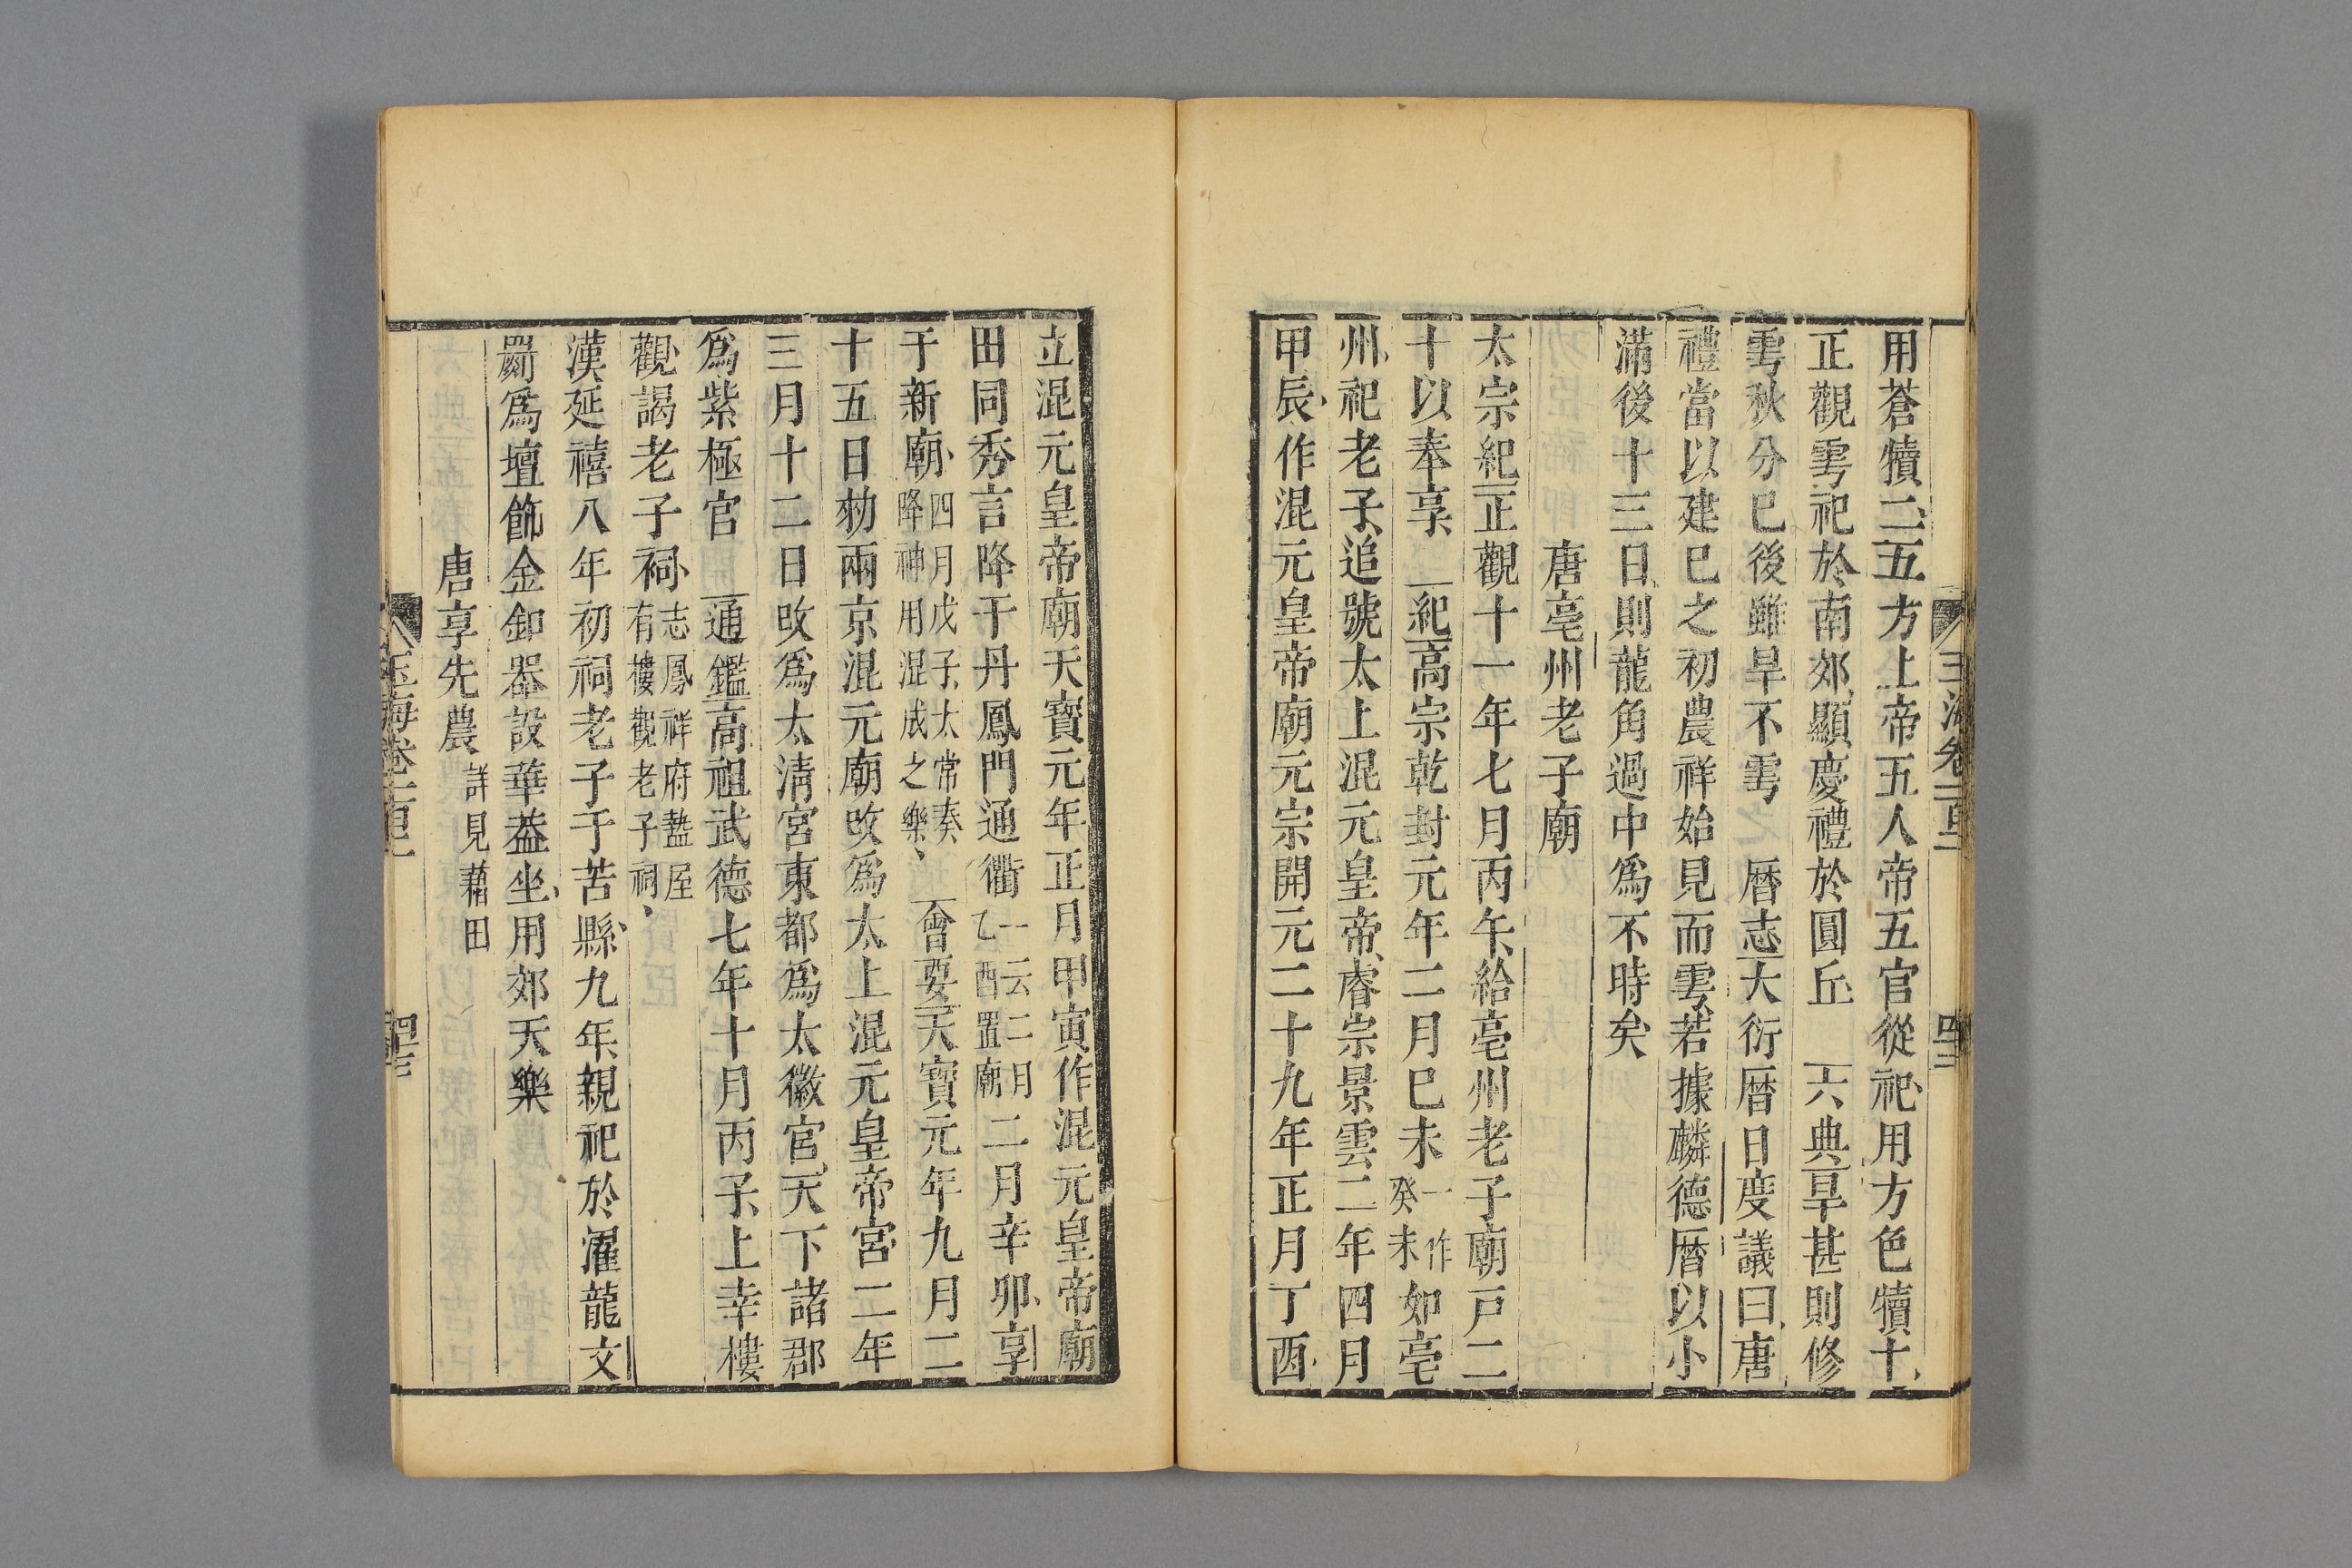 用蒼犢二五方上帝五人帝五官從祀用方色犢十
正觀雩祀於南郊顯慶禮於圓丘　六典旱甚則修
雩秋分已後雖旱不雩　曆志大衍曆日度議曰唐
禮當以建巳之初農祥始見而雩若據麟德曆以小
滿後十三日則龍角過中爲不時矣
唐亳州老子廟
太宗紀正觀十一年七月丙午給亳州老子廟戸二
十以奉享　紀高宗乾封元年二月巳未一作癸未如亳
州祀老子追號太上混元皇帝睿宗景雲二年四月
甲辰作混元皇帝廟元宗開元二十九年正月丁酉
立混元皇帝廟天寶元年正月甲寅作混元皇帝廟
田同秀言降于丹鳳門通衢一云二月乙酉置廟二月辛卯享
于新廟四月戊子太常奏降神用混成之樂　會要天寶元年九月二
十五日勑兩京混元廟攺爲太上混元皇帝宮二年
三月十二日攺爲太清宮東都爲太徽宮天下諸郡
爲紫極宮　通鑑高祖武德七年十月丙子上幸樓
觀謁老子祠志鳳祥府盩厔有樓觀老子祠
漢延禧八年初祠老子于苦縣九年親祀於濯龍文
罽爲壇飾金釦器設華葢坐用郊天樂
唐享先農詳見藉田